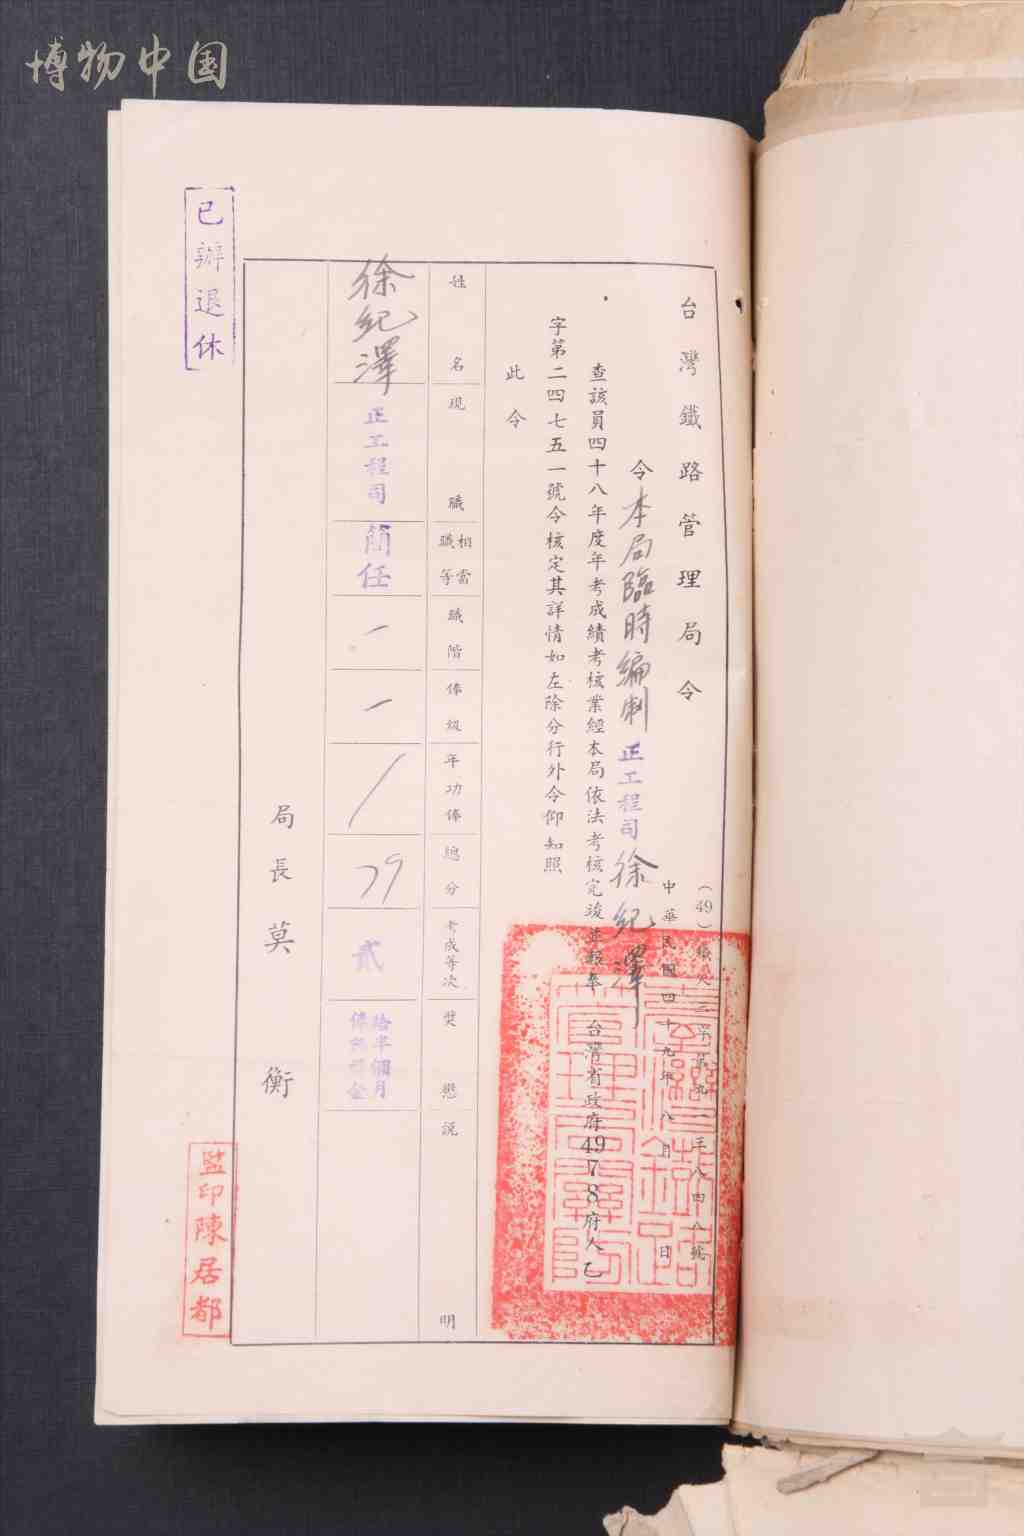 博物中国
台灣鐵路管理局令
中華民國四十九年八月 日
令本局臨時編制正工程司徐紀澤
查該員四十八年度年考成績考核業經本局依法考核完竣並報奉 台灣省政府4978府人乙
字第二四七五一號令核定其詳情如左除分行外令仰知照
此令
姓名 現職 相當職等 職階 俸級 年功俸 總分 考成等次 獎懲 說明
徐紀澤 正工程司 簡任 一 一 / 79 貳
局長莫衡
已辦退休
監印陳居都